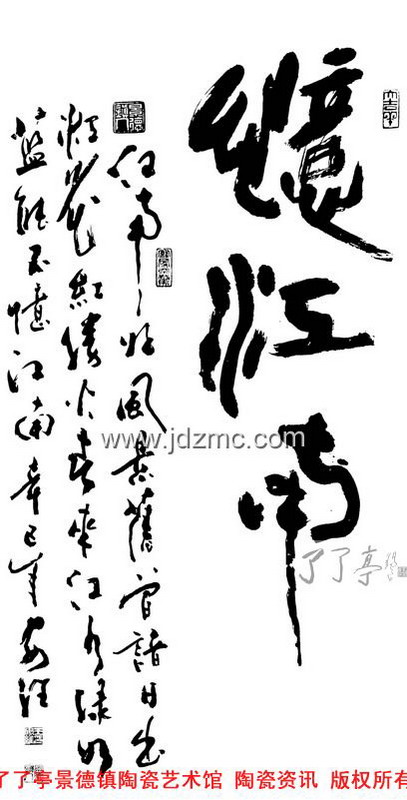 憶江南
江南好風景舊曾諳日出
江花紅勝火春來江水綠如
藍能不憶江南辛巳年
www.jdzmc.com
了了亭
了了亭景德镇陶瓷艺术馆 陶瓷资讯 版权所有